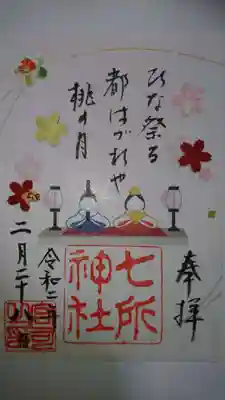 ひな祭る
都はづれや
桃の月
奉拝
七所
神社
令和二年
二月二十八日